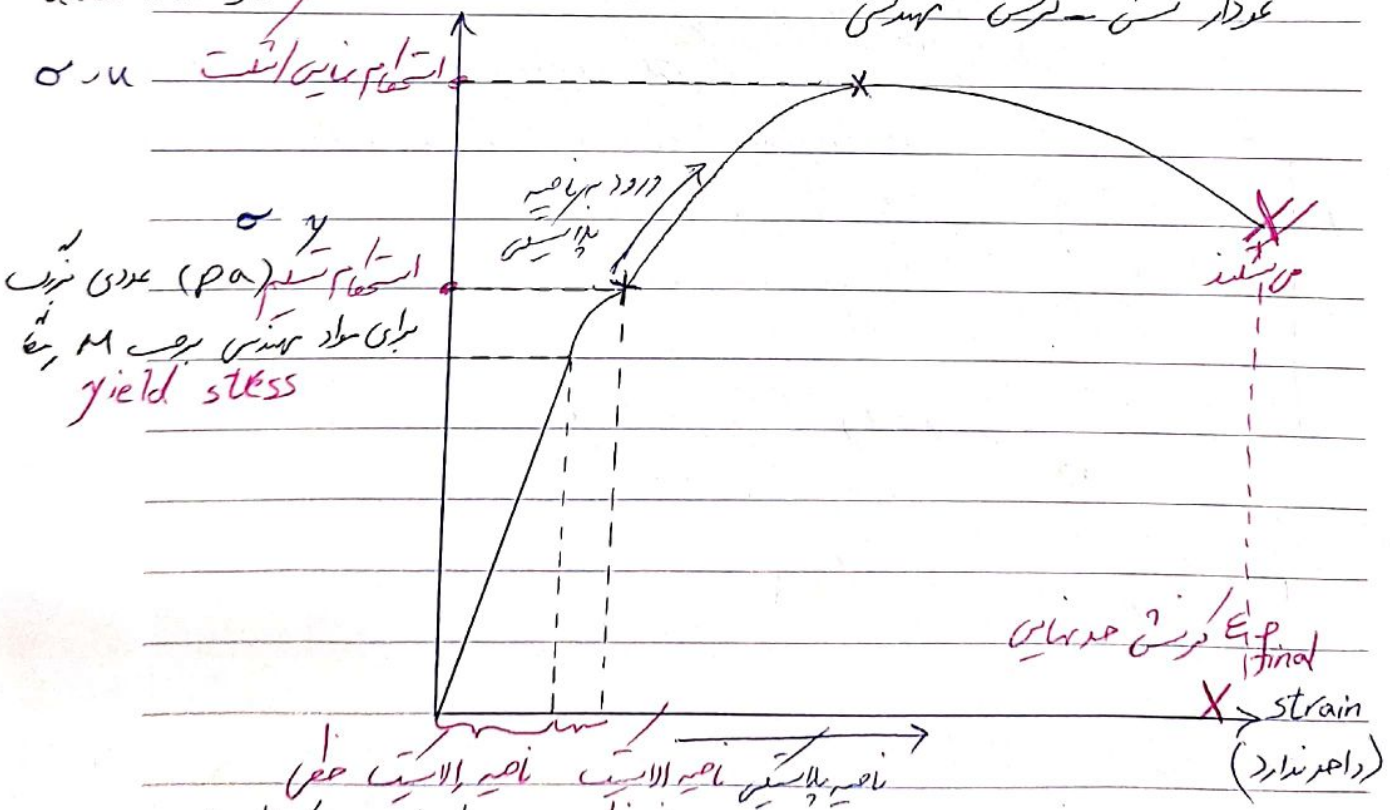 نمودار تنش - کرنش مهندسی
σ-u استحکام نهایی / تست
ورود به ناحیه
پلاستیکی
σ y
استحکام تسلیم (pa) عددی بزرگ
برای مواد مهندسی برحسب M
yield stess
می‌شکند
کرنش حد نهایی
final
X strain
(واحد ندارد)
ناحیه الاستیک خطی ناحیه الاستیک ناحیه پلاستیکی